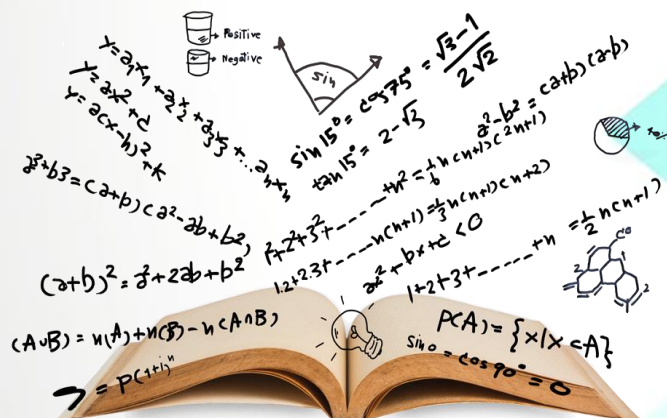 Positive
Negative
sin
y=a₁x₁+a₂x₂+a₃x₃+...aₙxₙ
y=ax²+c
y=a(x-h)²+k
sin15°=cos75°=√3-1/2√2
tan15°=2-√3
a²-b²=(a+b)(a-b)
a³+b3=(a+b)(a²-ab+b²)
1²+2²+3²+------+n²=1/6n(n+1)(2n+1)
1.2+2.3+------n(n+1)=1/3n(n+1)(n+2)
ax²+bx+c<0
1+2+3+------+n=1/2n(n+1)
(a+b)²=a²+2ab+b²
CO
2
2
1
(A∪B)=n(A)+n(B)-n(A∩B)
P(A)={x|x⊂A}
sin0=cos90°=0
=P(1+i)ⁿ